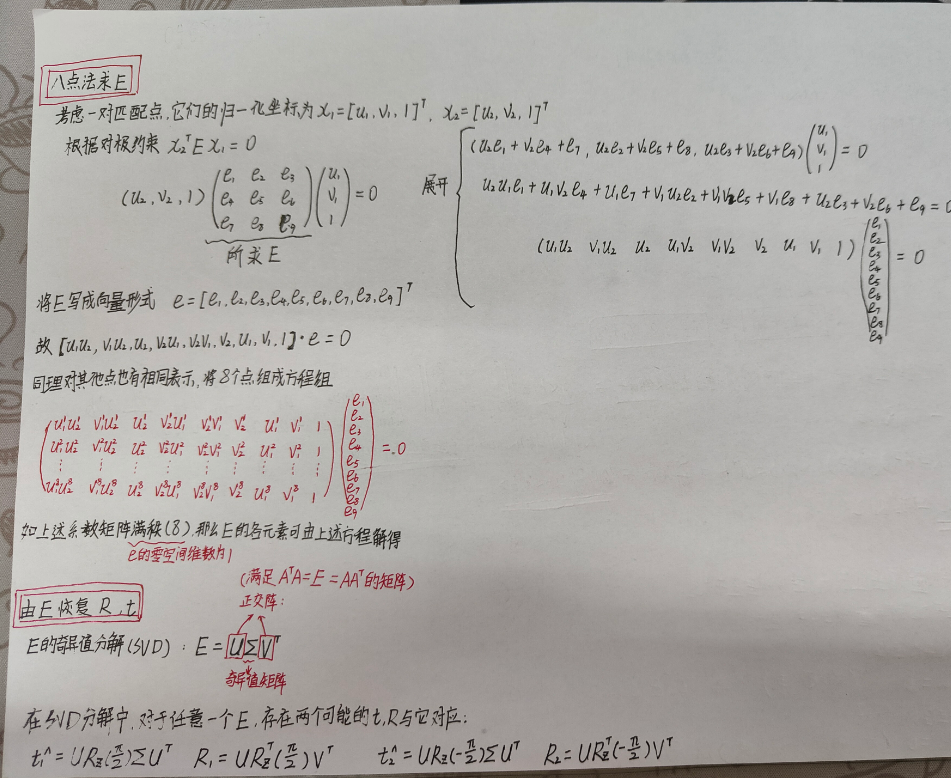 八点法求E
考虑一对匹配点,它们的归一化坐标为 x₁=[u₁,v₁,1]ᵀ, x₂=[u₂,v₂,1]ᵀ
根据对极约束 x₂ᵀEx₁=0
(u₂,v₂,1) (e₁ e₂ e₃ / e₄ e₅ e₆ / e₇ e₈ e₉) (u₁ / v₁ / 1) =0
所求E
展开
(u₂e₁+v₂e₄+e₇, u₂e₂+v₂e₅+e₈, u₂e₃+v₂e₆+e₉) (u₁ / v₁ / 1) =0
u₂u₁e₁+u₁v₂e₄+u₁e₇+v₁u₂e₂+v₁v₂e₅+v₁e₈+u₂e₃+v₂e₆+e₉=0
(u₁u₂ v₁u₂ u₂ u₁v₂ v₁v₂ v₂ u₁ v₁ 1) (e₁ / e₂ / e₃ / e₄ / e₅ / e₆ / e₇ / e₈ / e₉) =0
将E写成向量形式 e=[e₁,e₂,e₃,e₄,e₅,e₆,e₇,e₈,e₉]ᵀ
故[u₁u₂,v₁u₂,u₂,v₂u₁,v₂v₁,v₂,u₁,v₁,1]·e=0
同理对其他点也有相同表示,将8个点组成方程组
u₁¹u₂¹ v₁¹u₂¹ u₂¹ v₂¹u₁¹ v₂¹v₁¹ v₂¹ u₁¹ v₁¹ 1
u₁²u₂² v₁²u₂² u₂² v₂²u₁² v₂²v₁² v₂² u₁² v₁² 1
⋮ ⋮ ⋮ ⋮ ⋮ ⋮ ⋮ ⋮ ⋮
u₁⁸u₂⁸ v₁⁸u₂⁸ u₂⁸ v₂⁸u₁⁸ v₂⁸v₁⁸ v₂⁸ u₁⁸ v₁⁸ 1
(e₁ / e₂ / e₃ / e₄ / e₅ / e₆ / e₇ / e₈ / e₉) =0
如上述系数矩阵满秩(8),那么E的各元素可由上述方程解得
e的零空间维数为1
(满足AᵀA=E=AAᵀ的矩阵)
正交阵:
由E恢复R,t
E的奇异值分解(SVD): E=UΣVᵀ
奇异值矩阵
在SVD分解中,对于任意一个E,存在两个可能的t,R与它对应:
t₁^=UR_Z(π/2)ΣUᵀ R₁=UR_Zᵀ(π/2)Vᵀ t₂^=UR_Z(-π/2)ΣUᵀ R₂=UR_Zᵀ(-π/2)Vᵀ